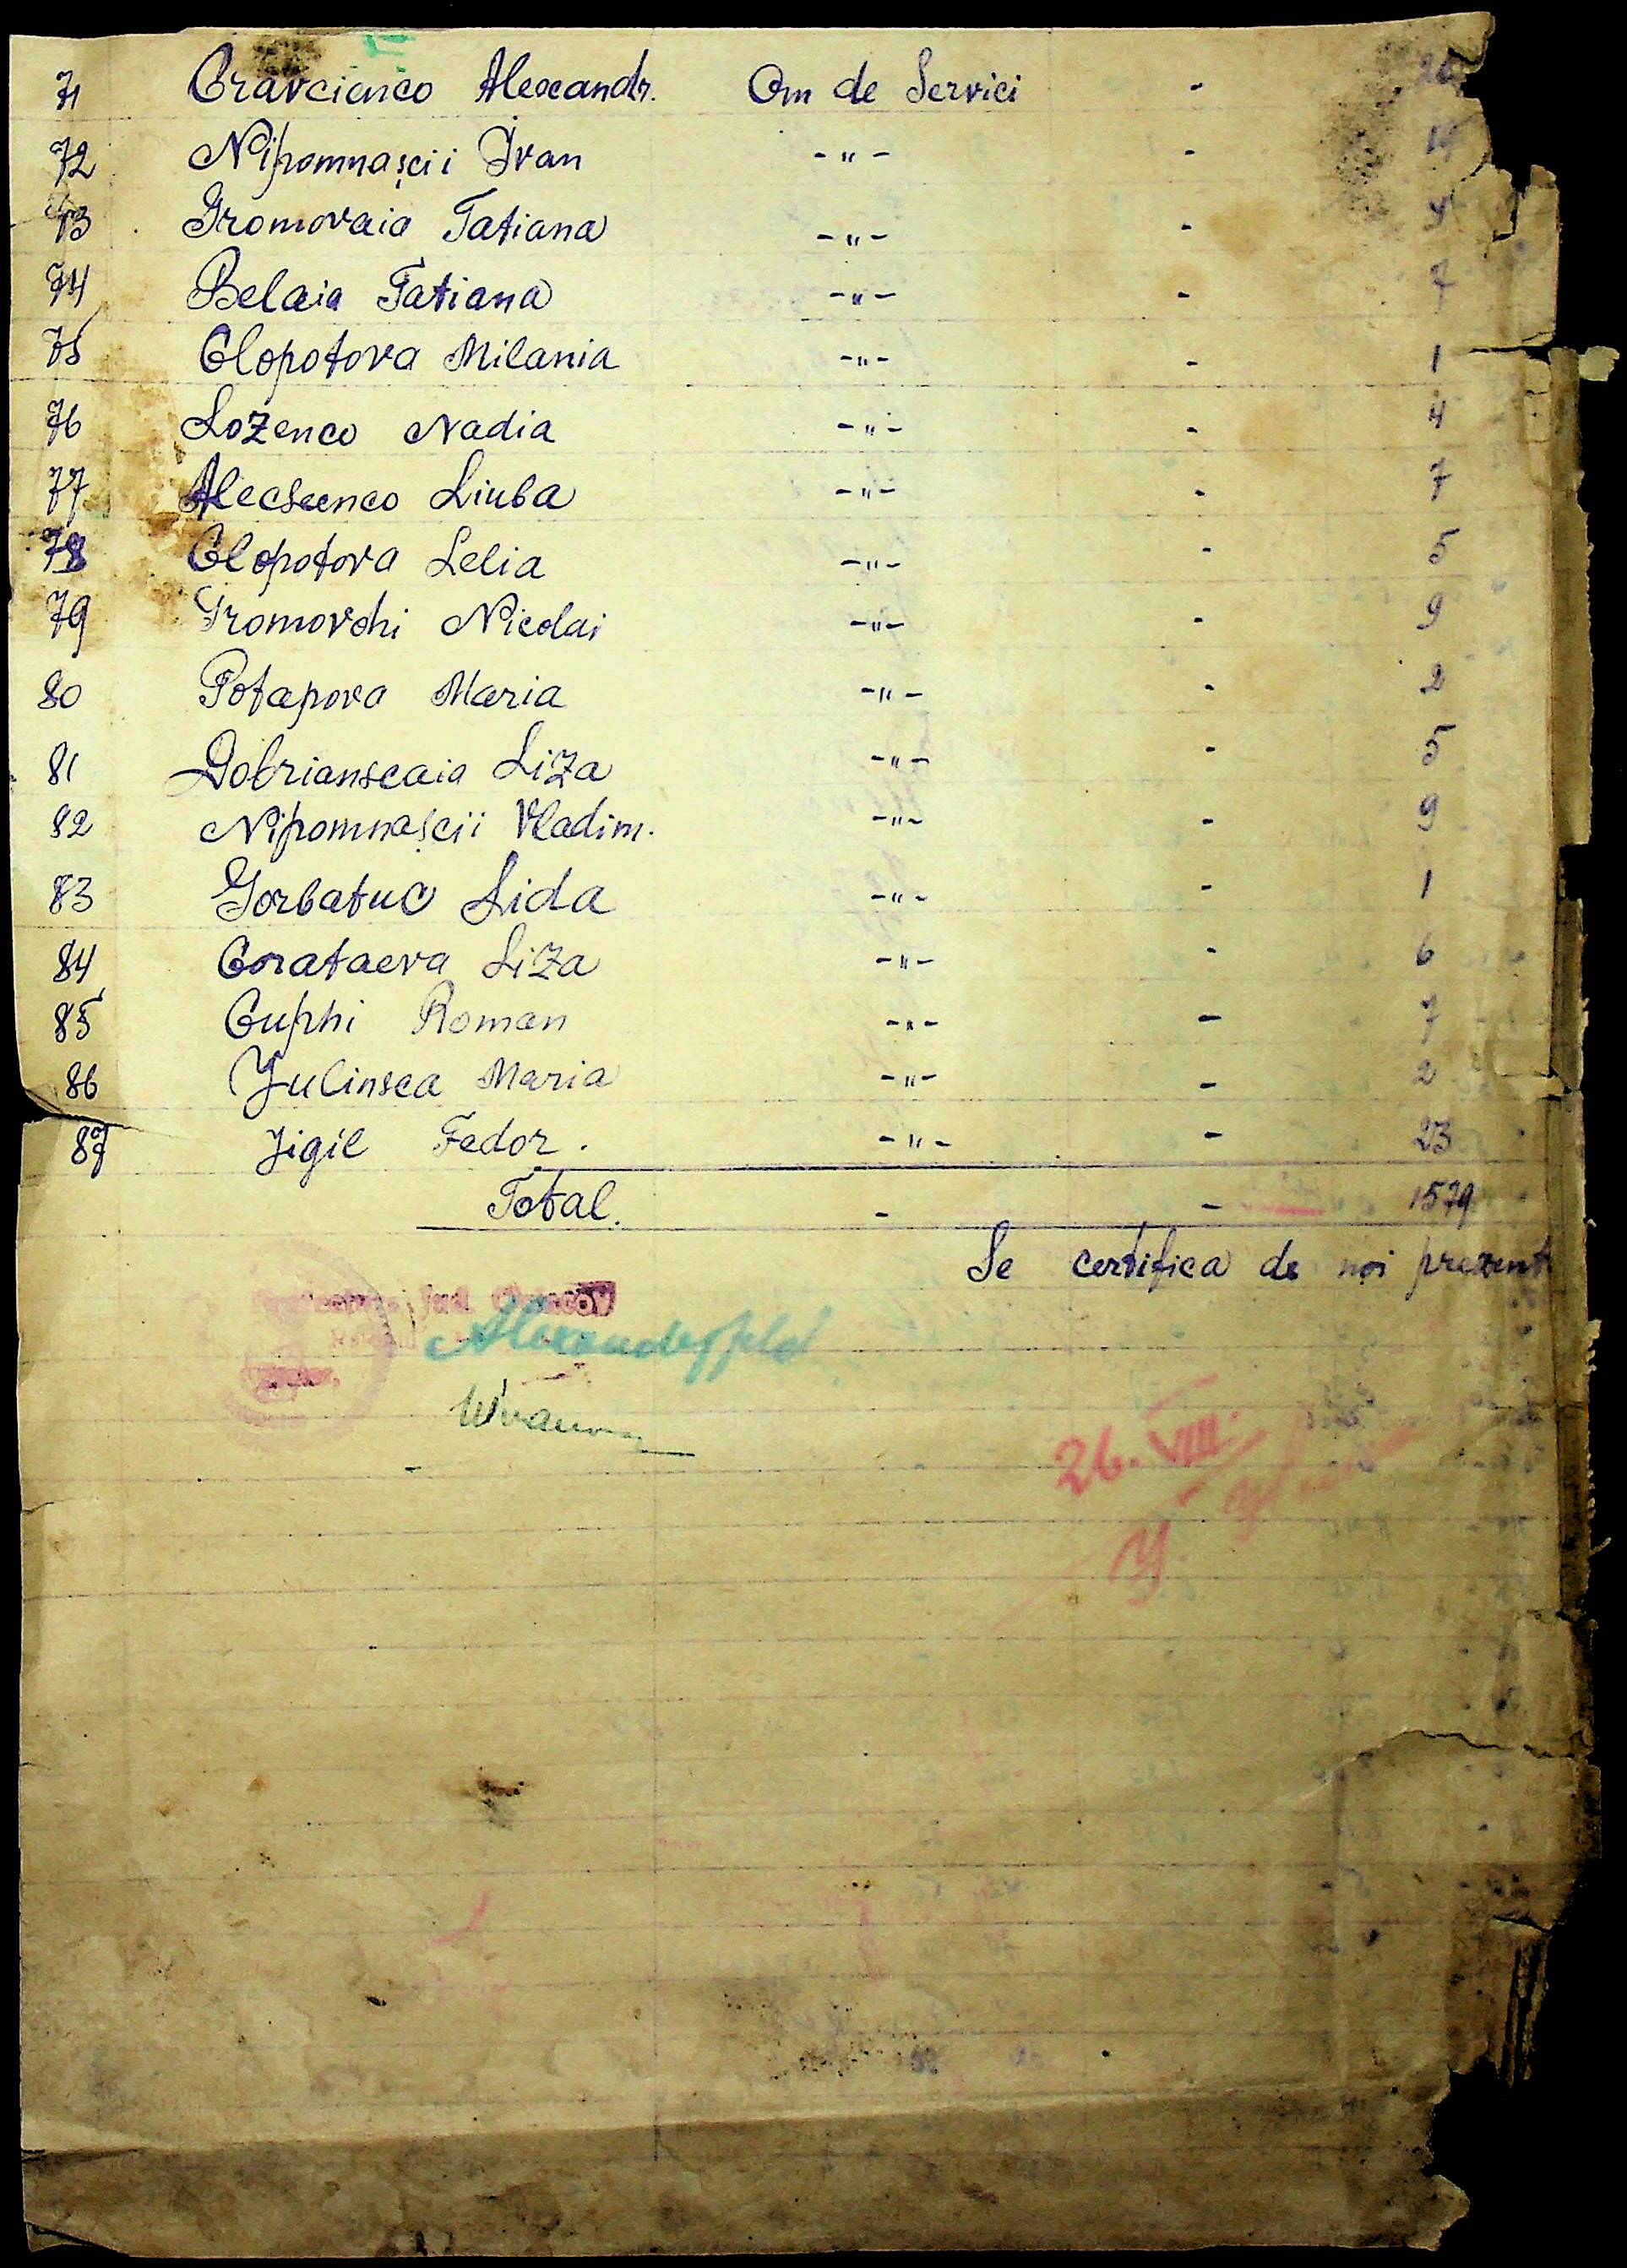 71 Cravcienco Alexandr. Om de Servici -
72 Nipomnașcii Ivan -"- -
73 Gromovaia Tatiana -"- -
74 Belaia Tatiana -"- - 7
75 Clopotova Milania -"- - 1
76 Lozenco Nadia -"- - 4
77 Alecseenco Liuba -"- - 7
78 Clopotova Lelia -"- - 5
79 Gromovohi Nicolai -"- - 9
80 Potapova Maria -"- - 2
81 Dobrianscaia Liza -"- - 5
82 Nipomnașcii Vladim. -"- - 9
83 Gorbatuc Lida -"- - 1
84 Corataeva Liza -"- - 6
85 Cuphi Roman -"- - 7
86 Julinsca Maria -"- - 2
87 Jigil Fedor. -"- - 23
Total. - - 1579
Se certifica de noi prezent
jud.
Alexanderfeld
26. VIII.